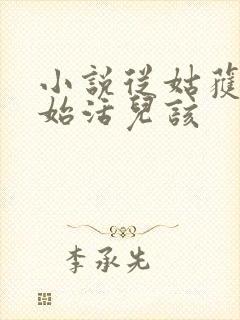 小說從姑獲
始活兒該
李承先